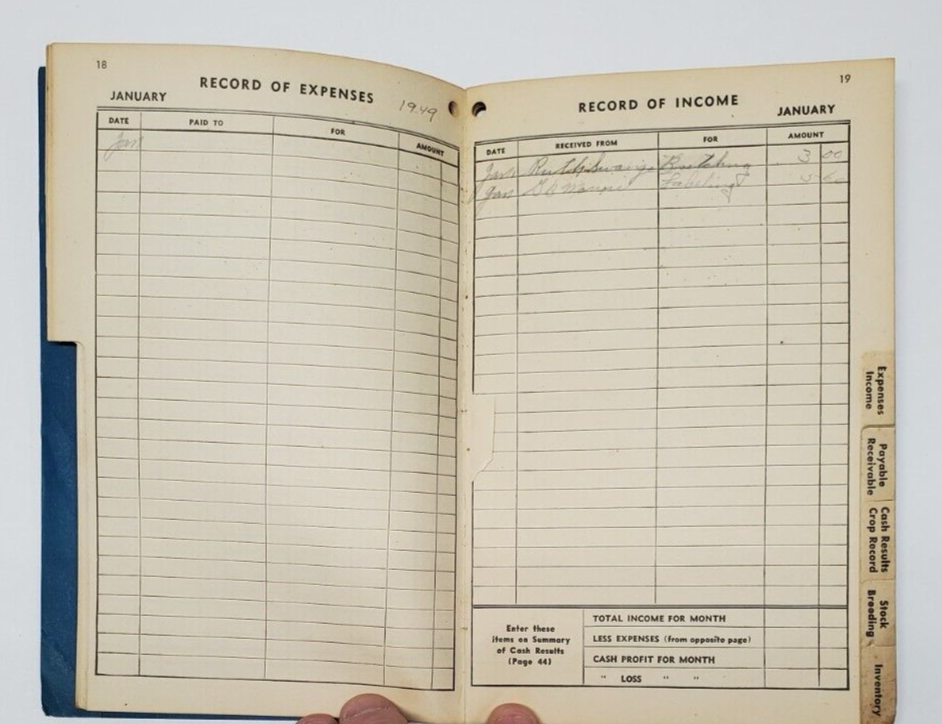 18
RECORD OF EXPENSES
1949
JANUARY
DATE PAID TO FOR AMOUNT
Jan
19
RECORD OF INCOME
JANUARY
DATE RECEIVED FROM FOR AMOUNT
Jan Ruth 3 00
Jan
Enter these
items on Summary
of Cash Results
(Page 44)
TOTAL INCOME FOR MONTH
LESS EXPENSES (from opposite page)
CASH PROFIT FOR MONTH
" LOSS " "
Expenses
Income
Payable
Receivable
Cash Results
Crop Record
Stock
Breeding
Inventory